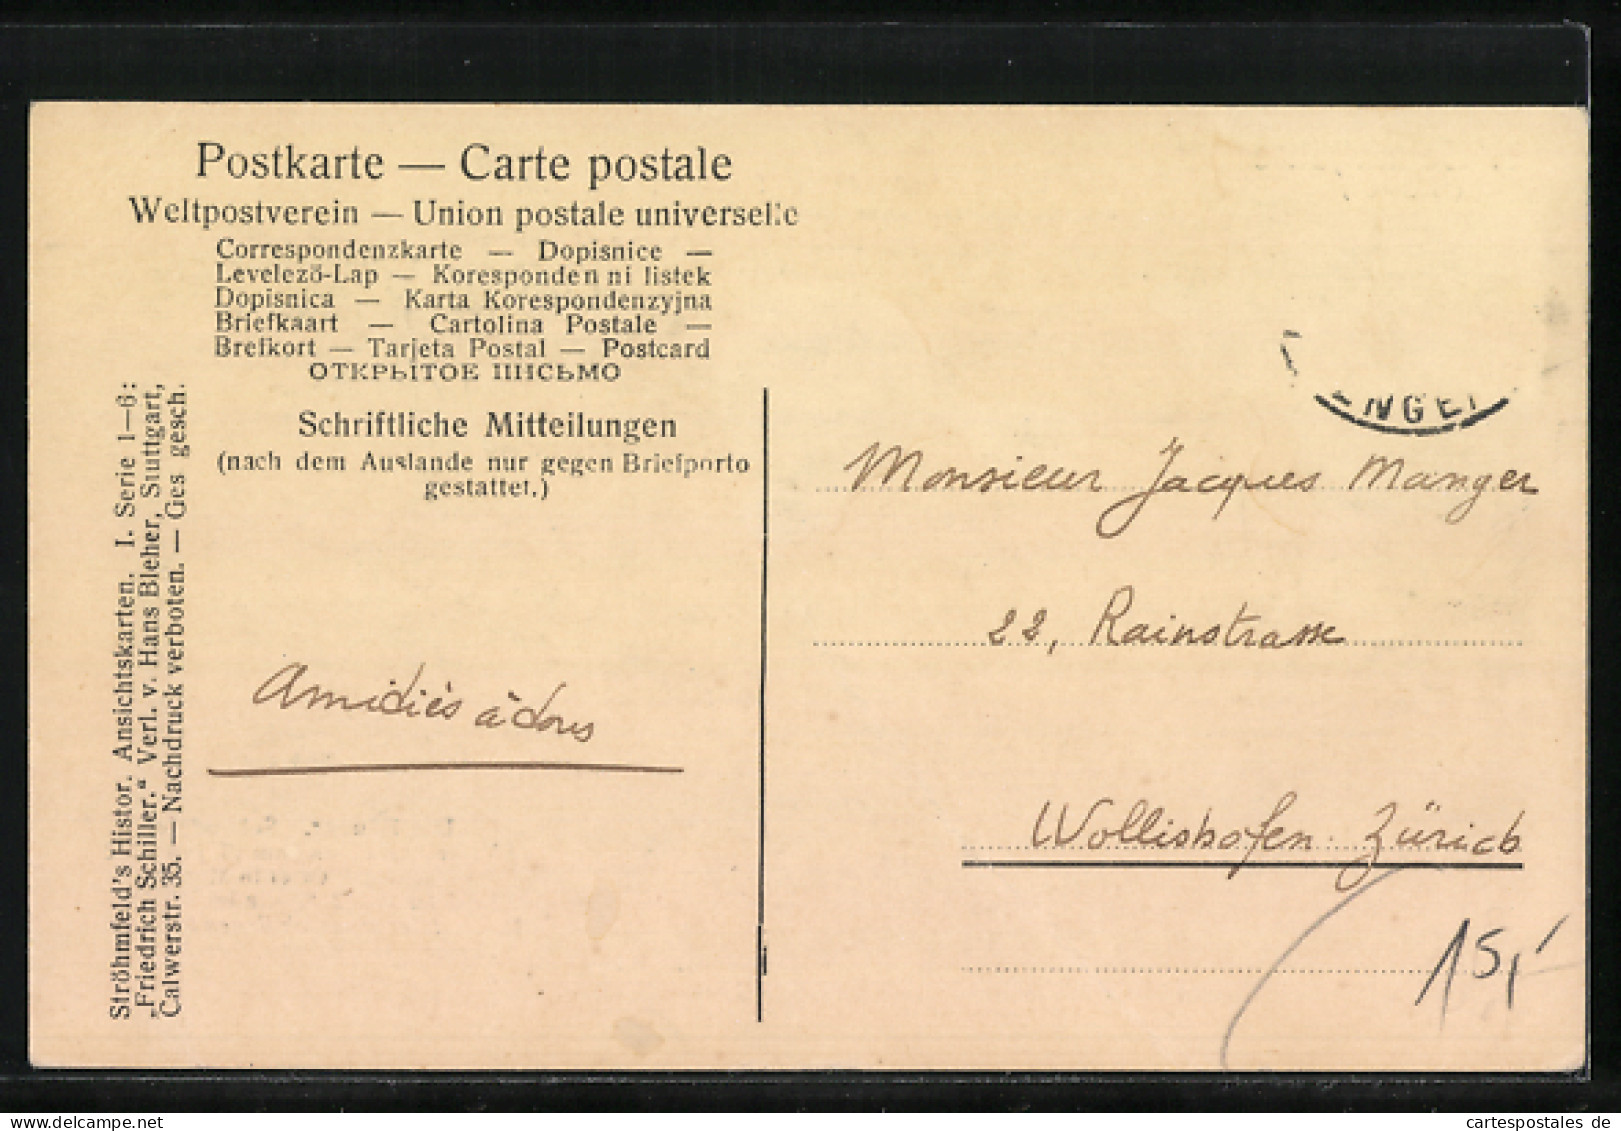 Postkarte — Carte postale
Weltpostverein — Union postale universelle
Correspondenzkarte — Dopisnice —
Levelező-Lap — Koresponden ni listek
Dopisnica — Karta Korespondenzyjna
Briefkaart — Cartolina Postale —
Brefkort — Tarjeta Postal — Postcard
ОТКРЫТОЕ ПИСЬМО
Schriftliche Mitteilungen
(nach dem Auslande nur gegen Briefporto
gestattet.)
Ströhmfeld's Histor. Ansichtskarten. I. Serie 1—6:
„Friedrich Schiller.“ Verl. v. Hans Bleher, Stuttgart,
Calwerstr. 35. — Nachdruck verboten. — Ges gesch.
Amitiés à tous
NGE
Monsieur Jacques Manger
22, Rainstrasse
Wollishofen-Zürich
15,-
cartespostales de